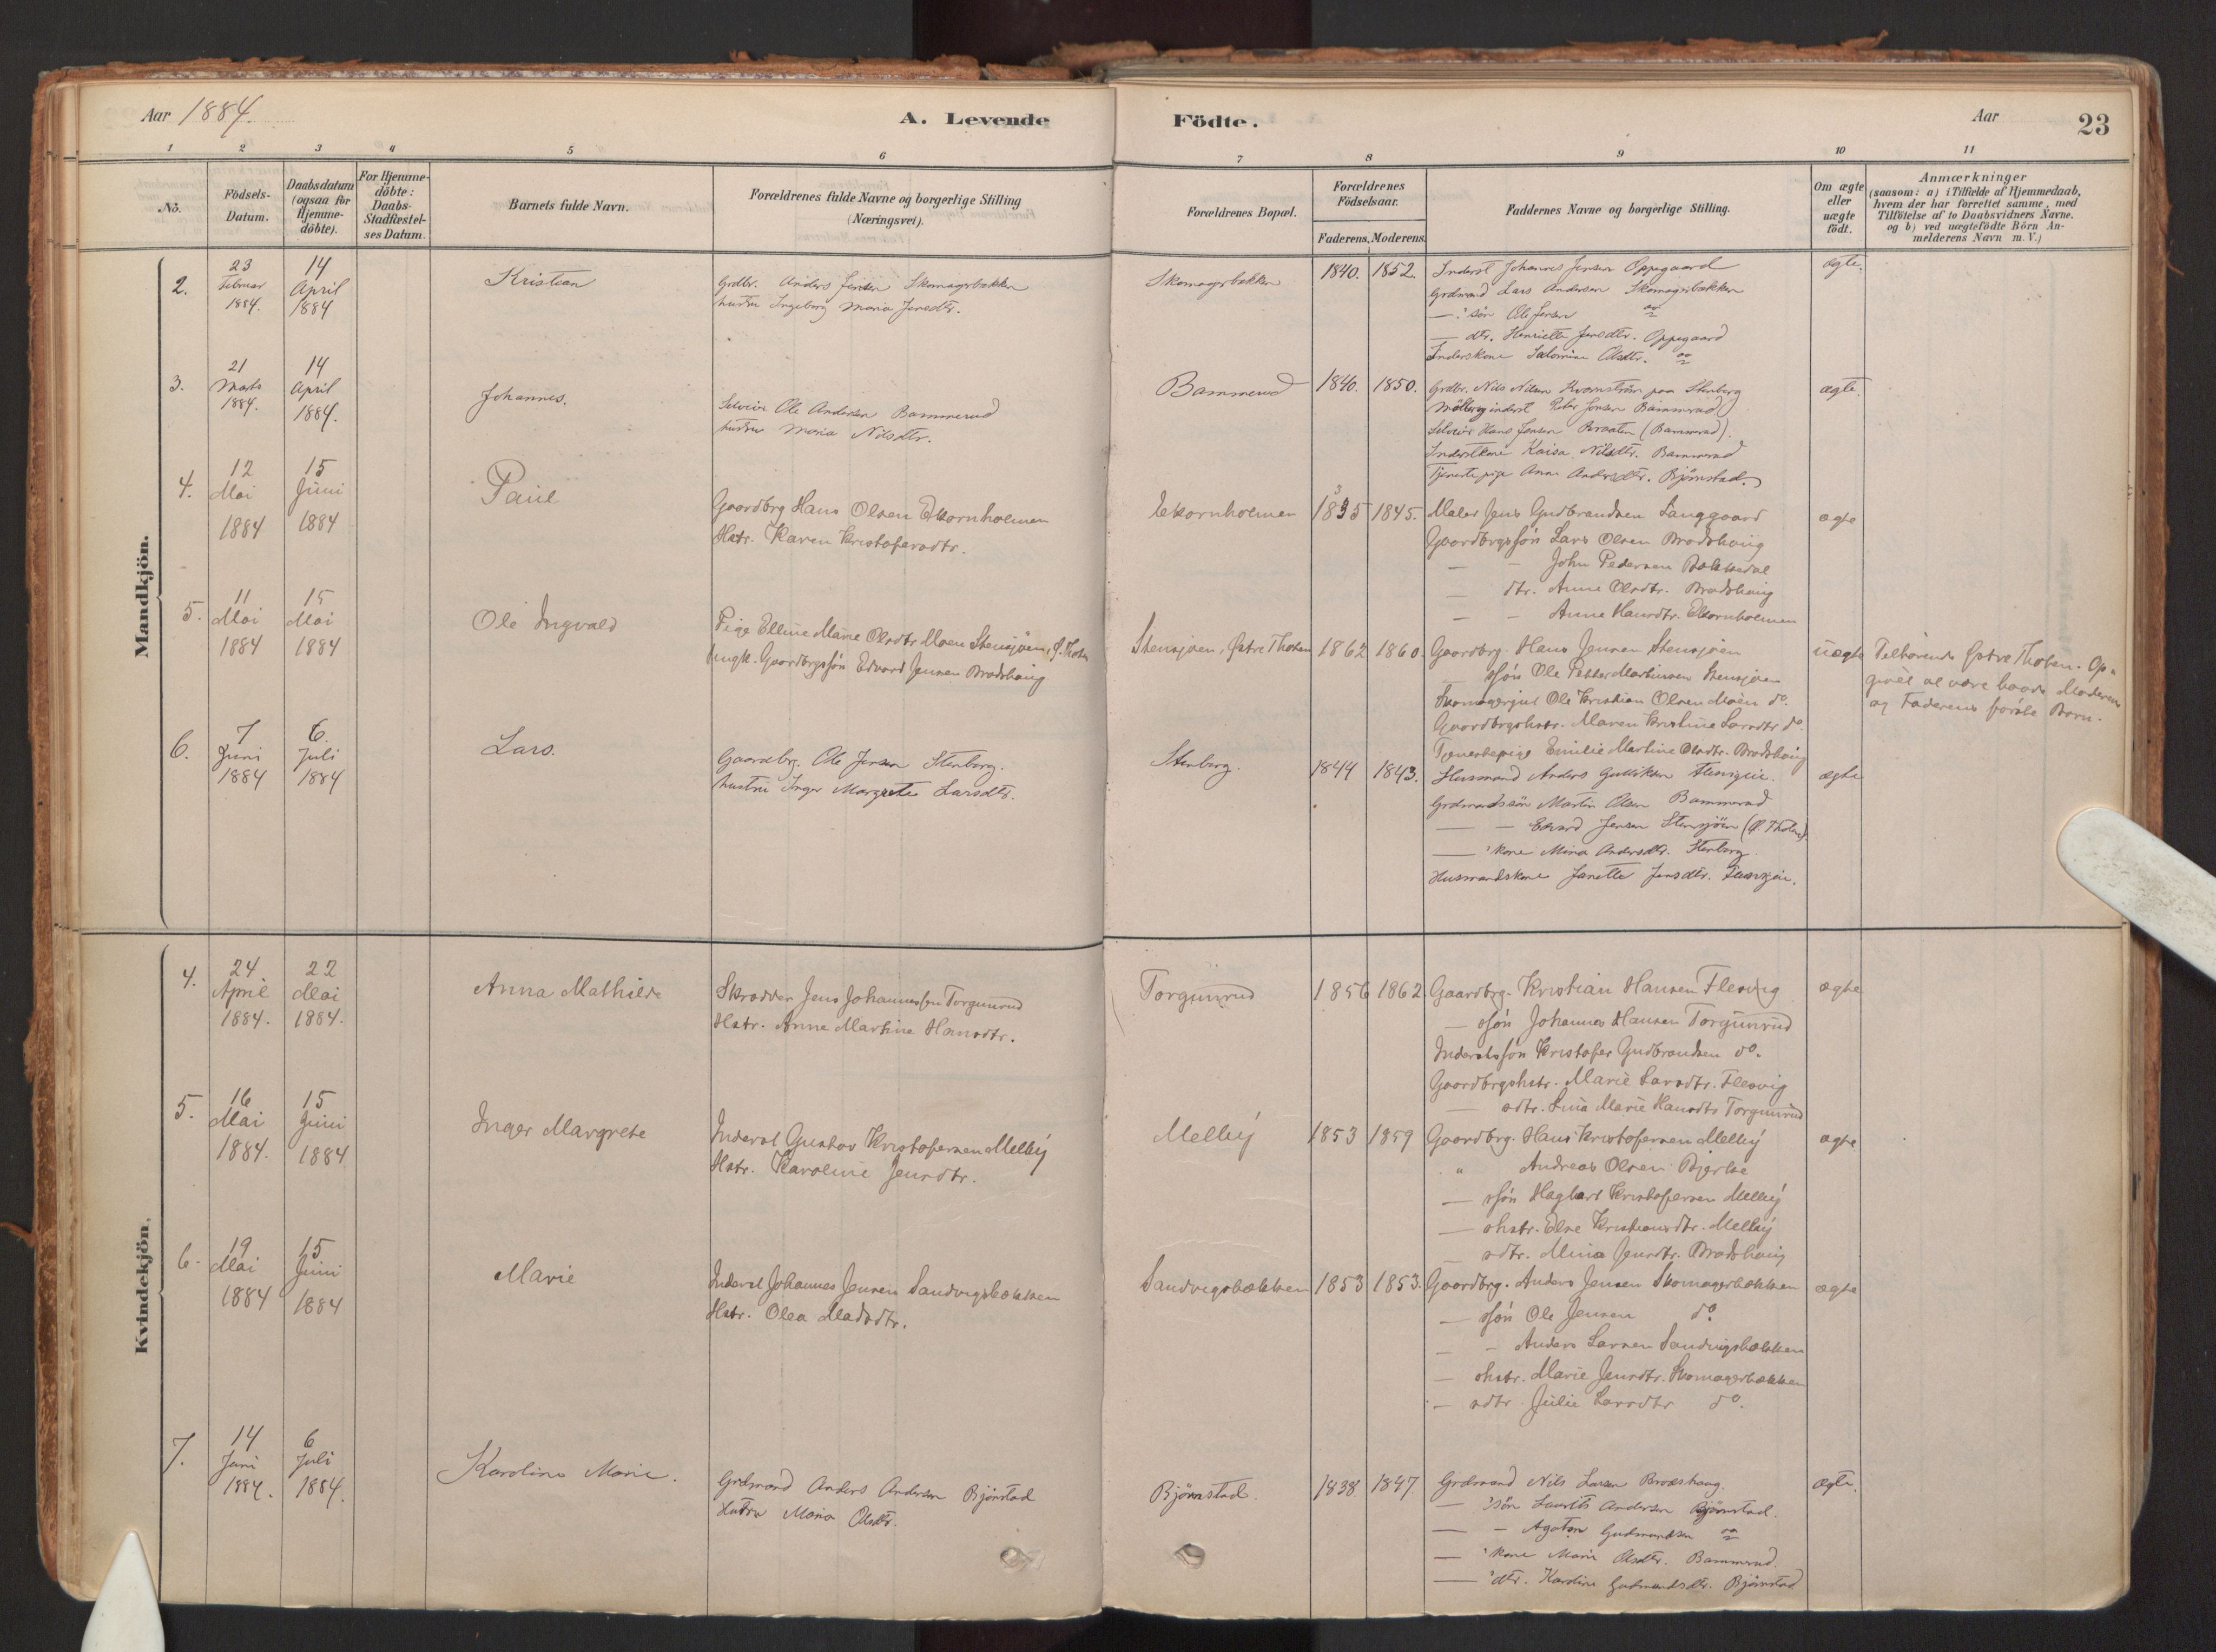 Aar 1884.
A. Levende
Födte.
Aar
23
1 2 3 4 5 6 7 8 9 10 11
No.
Födsels-
Datum.
Daabsdatum
(ogsaa for
Hjemme-
döbte).
For Hjemme-
döbte:
Daabs-
Stadfæstel-
ses Datum.
Barnets fulde Navn.
Forældrenes fulde Navne og borgerlige Stilling
(Næringsvei).
Forældrenes Bopæl.
Forældrenes
Födselsaar.
Faderens. Moderens.
Faddernes Navne og borgerlige Stilling.
Om ægte
eller
uægte
födt.
Anmærkninger
(saasom: a) i Tilfælde af Hjemmedaab,
hvem der har forrettet samme, med
Tilföielse af to Daabsvidners Navne.
og b) ved uægtefödte Börn An-
melderens Navn m. V.)
Mandkjön.
2.
23
Februar
1884.
14
April
1884
Kristian
Grdbr. Anders Jensen Skomagerbakken
hustru Ingeborg Maria Jensdtr.
Skomagerbakken
1840. 1852.
Inderst Johannes Jensen Oppegaard
Grdmand Lars Andersen Skomagerbakken
— ' sön Ole Jensen do
— dtr. Henriette Jensdtr. Oppegaard
Inderskone Salomine Olsdtr. do
ægte.
3.
21
Marts
1884.
14
April
1884.
Johannes.
Selveier Ole Andersen Bammerud
hustru Maria Nilsdtr.
Bammerud
1840. 1850.
Grdbr. Nils Nilsen Kvornström paa Stenberg
Möller og inderst Peter Jensen Bammerud
Selveier Hans Jensen Braaten (Bammerud).
Inderstkone Kaisa Nilsdtr. Bammerud
Tjenestepige Anne Andersdtr. Bjørnstad.
ægte.
4.
12
Mai
1884
15
Juni
1884
Paul
Gaardbrg Hans Olsen Ekornholmen
Hstr. Karen Kristofersdtr.
Ekornholmen
1835 1845.
Maler Jens Gudbrandsen Langgaard
Gaardbrgssön Lars Olsen Brodshaug
— — John Pedersen Bakkedal
— dtr. Anne Olsdtr. Brodshaug
— — Anne Hansdtr. Ekornholmen
ægte
5.
11
Mai
1884
15
Mai
1884
Ole Ingvald
Pige Elline Marie Olsdtr Moen Stensjöen, Ø. Thoten
Ungk. Gaardbrgssön Edvard Jensen Brodshaug
Stensjøen, Østre Thoten
1862 1860.
Gaardbrg. Hans Jensen Stensjøen
— ssön Ole Petter Martinsen Stensjøen
Skomagergut Ole Kristian Olsen Moen do.
Gaardbrgshstr. Maren Kristine Larsdtr do.
Tjenestepige Emilie Martine Olsdtr. Brodshaug
uægte
Tilhørende Østre Thoten. Op-
givet at være baade Moderens
og Faderens første Barn.
6.
7
Juni
1884
6.
Juli
1884
Lars.
Gaardbr. Ole Jensen Stenberg.
hustru Inger Margrete Larsdtr.
Stenberg.
1844 1843.
Husmand Anders Gulliksen
Grdmandssön Martin Olsen Bammerud
— — Edvard Jensen Stensjöen (Ø. Thoten).
— ' kone Mina Andersdtr. Stenberg
Husmandskone Janette Jensdtr.
ægte
Kvindekjön.
4.
24
April
1884.
22
Mai
1884.
Anna Mathilde
Skrædder Jens Johannessen Torgunrud
Hstr. Anne Martine Hansdtr.
Torgunrud
1856 1862
Gaardbrg. Kristian Hansen Flesvig
— ssön Johannes Hansen Torgunrud
Inderstssön Kristofer Gudbrandsen do.
Gaardbrgshstr. Marie Larsdtr. Flesvig
— sdtr. Lina Marie Hansdtr Torgunrud
ægte
5.
16
Mai
1884.
15
Juni
1884
Inger Margrete
Inderst Gustav Kristofersen Melby
Hstr. Karoline Jensdtr.
Melby
1853 1859
Gaardbrg. Hans Kristofersen Melby
" Andreas Olsen Bjerke
— ssön Hagbart Kristofersen Melby
— shstr. Else Kristiansdtr. Melby
— sdtr. Mina Jensdtr. Brodshaug
ægte
6.
19
Mai
1884
15
Juni
1884
Marie
Inderst Johannes Jensen Sandvigsbakken
Hstr. Olea Madsdtr.
Sandvigsbakken
1853 1853.
Gaardbrg. Anders Jensen Skomagerbakken
— ssön Ole Jensen do.
— — Anders Larsen Sandvigsbakken
— shstr. Marie Jensdtr. Skomagerbakken
— sdtr Julie Larsdtr do.
ægte
7.
14
Juni
1884.
6
Juli
1884.
Karoline Marie.
Grdmand Anders Andersen Bjørnstad
Hustru Maria Olsdtr.
Bjørnstad.
1838. 1847
Grdmand Nils Larsen Brodshaug.
— ' sön Laurits Andersen Bjørnstad.
— — Agaton Gudmundsen do
— ' kone Marie Olsdtr. Bammerud.
— ' dtr. Karoline Gudmundsdtr. Bjørnstad
ægte.